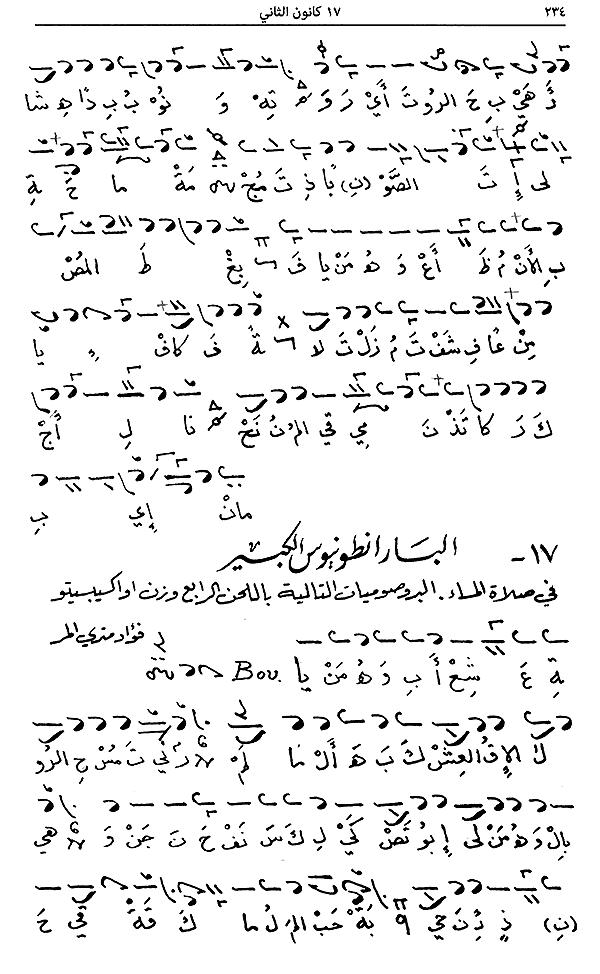 ٢٣٤ ١٧ كانون الثاني
ذُ هَيْ بِ حَ الرُوتَ أَيْ رَ وَ تِهْ وَ نُوْ بُ بِ ذا هِـ شا
لى إِ تَ الصَّوْ (نِ) با ذِ تَ مُجْ مَةْ ما حَ ةِ
بِ الأَنْ مُ ظَ أَعْ وَ هُ مَنْ يا فَ بِغْ طَ المُصْ
مِنْ عا فِ شَفْ تَ مُ زَلْ تَ لا ةً فَ كافْ ءِ يا
كَ رَ كا تَذْ نَ مِي قي المُ نُ نَحْ نا لِ أَجْ
مانْ إي بِ
١٧- البار انطونيوس الكبير
في صلاة المساء. البروصوميات التالية باللحن الرابع وزن اواكيبسيتو
فؤاد متري المر
ةِ عَ شِعْ أَ بِ وَ هُ مَنْ يا Bou.
لا الإِقْ العِشْ كَ بَ هَ أَلْ ما لَمْ ني تَ مُسْ حِ الرُو
بِالْ وَ هُ مَنْ لى إِ بو تَصْ كَيْ لِ كَ سَ نَفْ حَ تَ جَنْ وَ هي
(نِ) ذِ ذِنَ حي بَةْ حَبْ المَ لُ ما كَ قَةْ في حَ